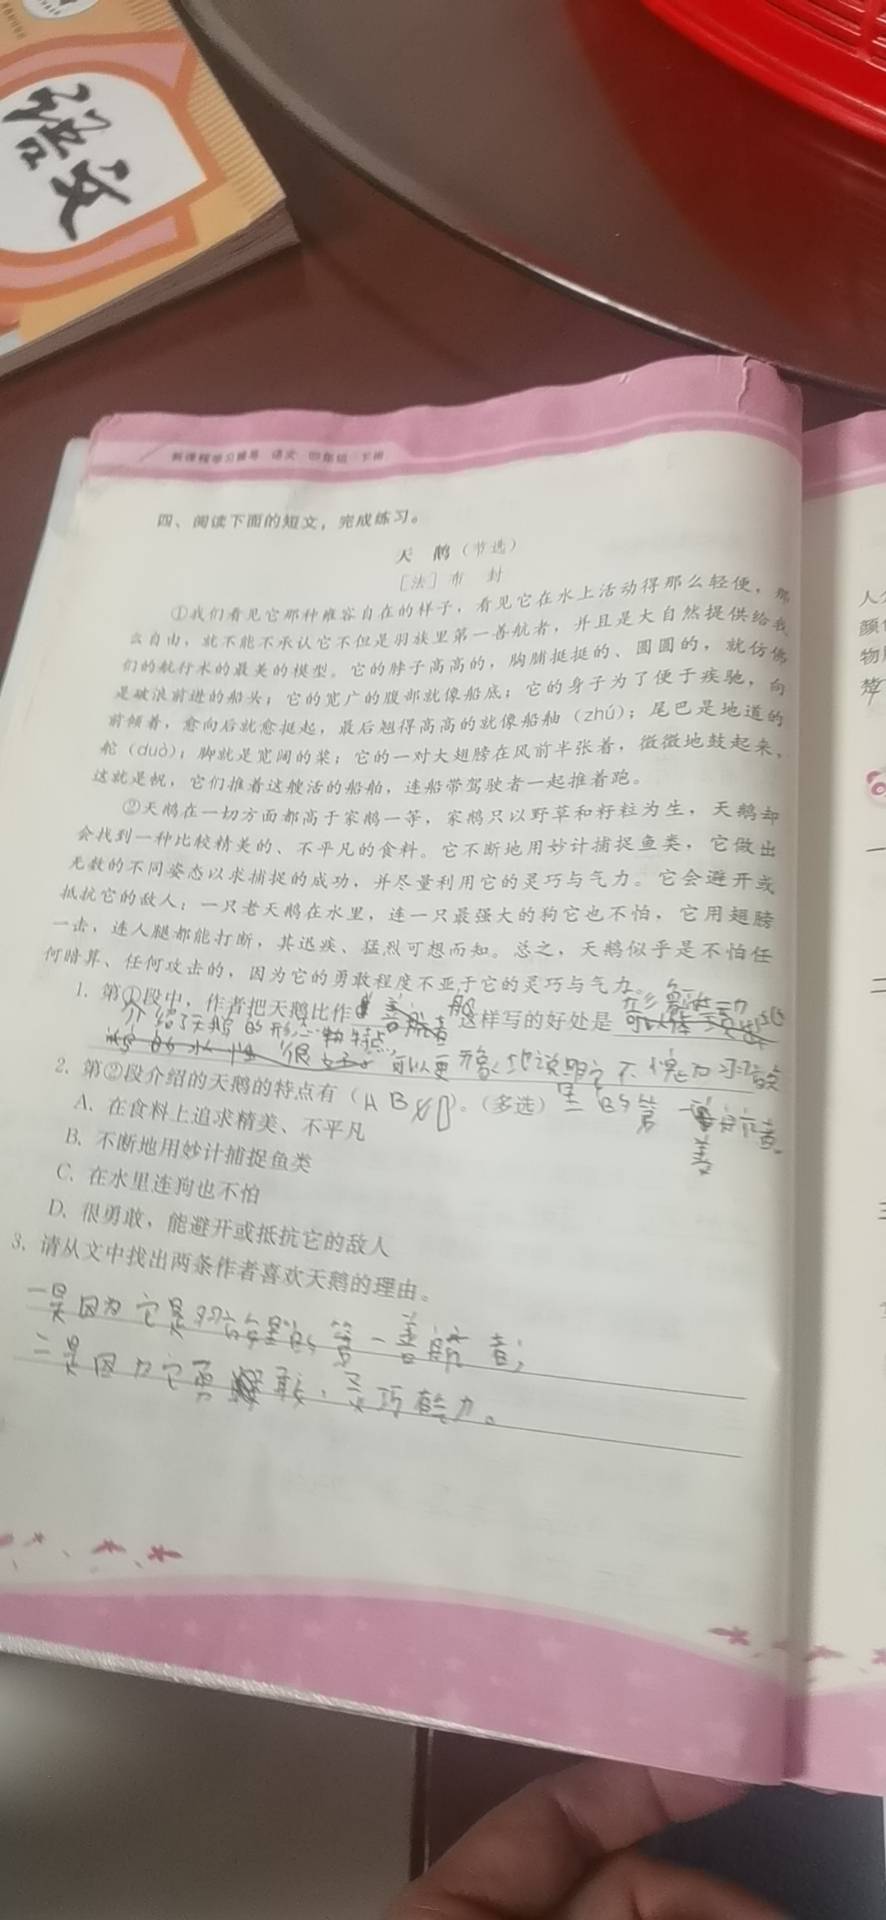 语文
新课程学习辅导 语文 四年级 下册
四、阅读下面的短文，完成练习。
天 鹅（节选）
［法］布 封
①我们看见它那种雍容自在的样子，看见它在水上活动得那么轻便，那
么自由，就不能不承认它不但是羽族里第一善航者，并且是大自然提供给我
们的航行术的最美的模型。它的脖子高高的，胸脯挺挺的、圆圆的，就仿佛
是破浪前进的船头；它的宽广的腹部就像船底；它的身子为了便于疾驰，向
前倾着，愈向后就愈挺起，最后翘得高高的就像船舳（zhú）；尾巴是地道的
舵（duò）；脚就是宽阔的桨；它的一对大翅膀在风前半张着，微微地鼓起来，
这就是帆，它们推着这艘活的船舶，连船带驾驶者一起推着跑。
②天鹅在一切方面都高于家鹅一等，家鹅只以野草和籽粒为生，天鹅却
会找到一种比较精美的、不平凡的食料。它不断地用妙计捕捉鱼类，它做出
无数的不同姿态以求捕捉的成功，并尽量利用它的灵巧与气力。它会避开或
抵抗它的敌人；一只老天鹅在水里，连一只最强大的狗它也不怕，它用翅膀
一击，连人腿都能打断，其迅疾、猛烈可想而知。总之，天鹅似乎是不怕任
何暗算、任何攻击的，因为它的勇敢程度不亚于它的灵巧与气力。
1. 第①段中，作者把天鹅比作 船 这样写的好处是 形象生动
介绍了天鹅的形态 特点
可以更形象地说明它不愧为羽族
2. 第②段介绍的天鹅的特点有（A B D）。（多选） 里的第一善航者。
A. 在食料上追求精美、不平凡
善
B. 不断地用妙计捕捉鱼类
C. 在水里连狗也不怕
D. 很勇敢，能避开或抵抗它的敌人
3. 请从文中找出两条作者喜欢天鹅的理由。
一是因为它是羽族里的第一善航者；
二是因为它勇敢，灵巧能力。